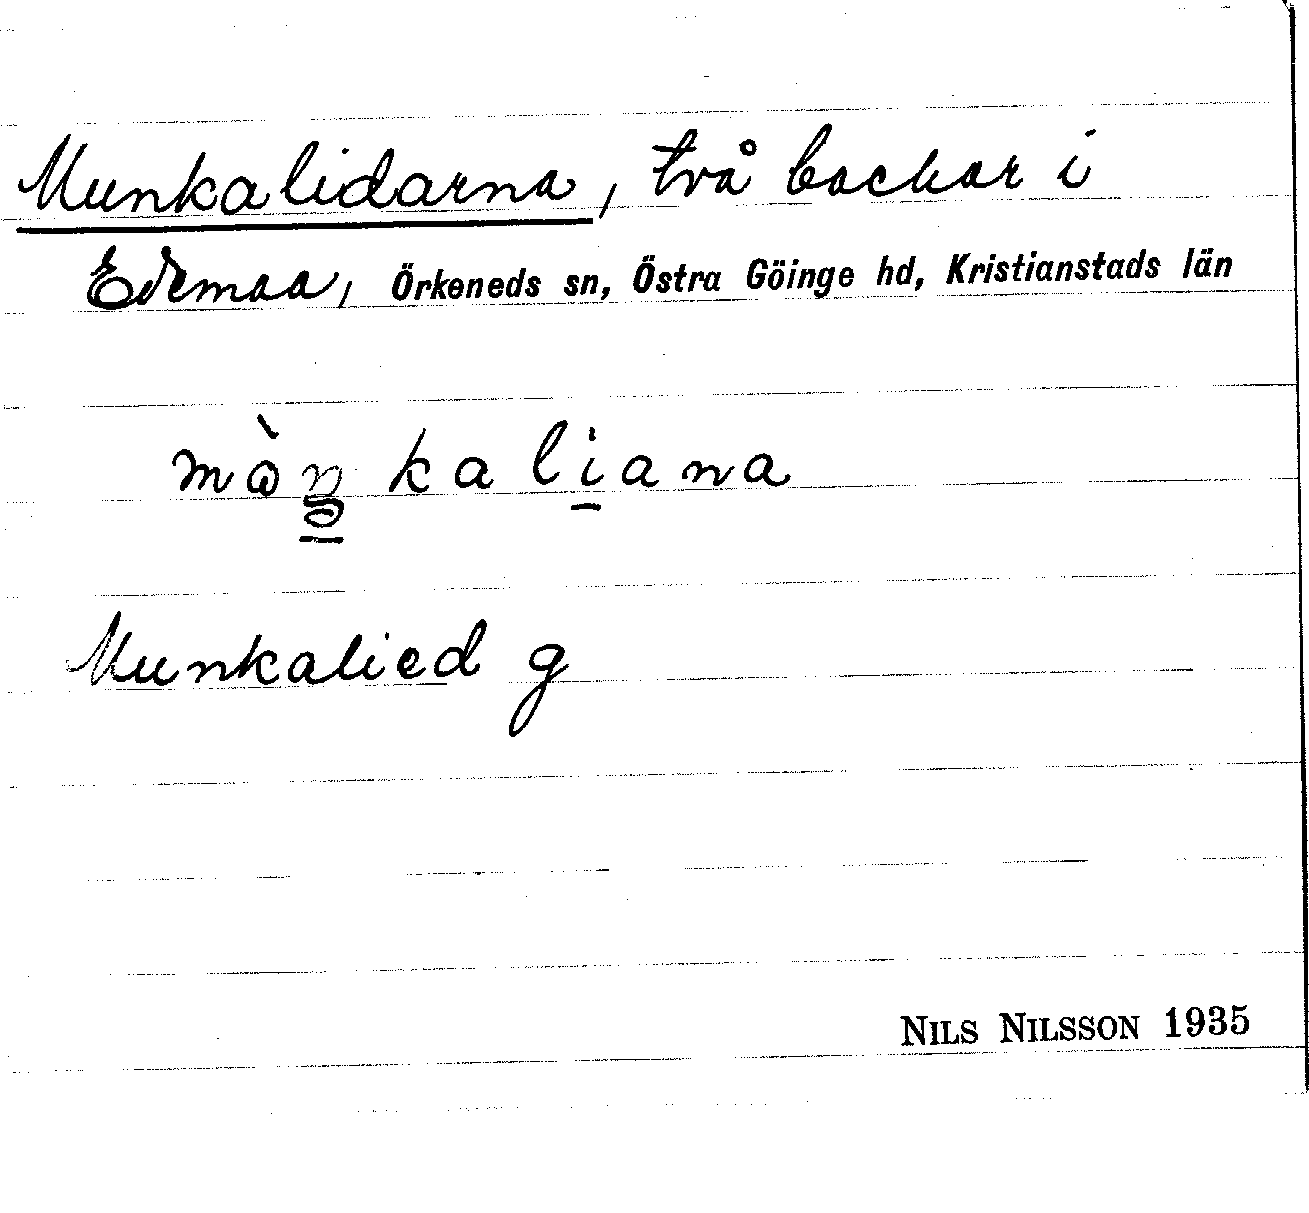 Munkalidarna, två backar i
Edemaa, Örkeneds sn, Östra Göinge hd, Kristianstads län
kaliana
Munkalied g
NILS NILSSON 1935